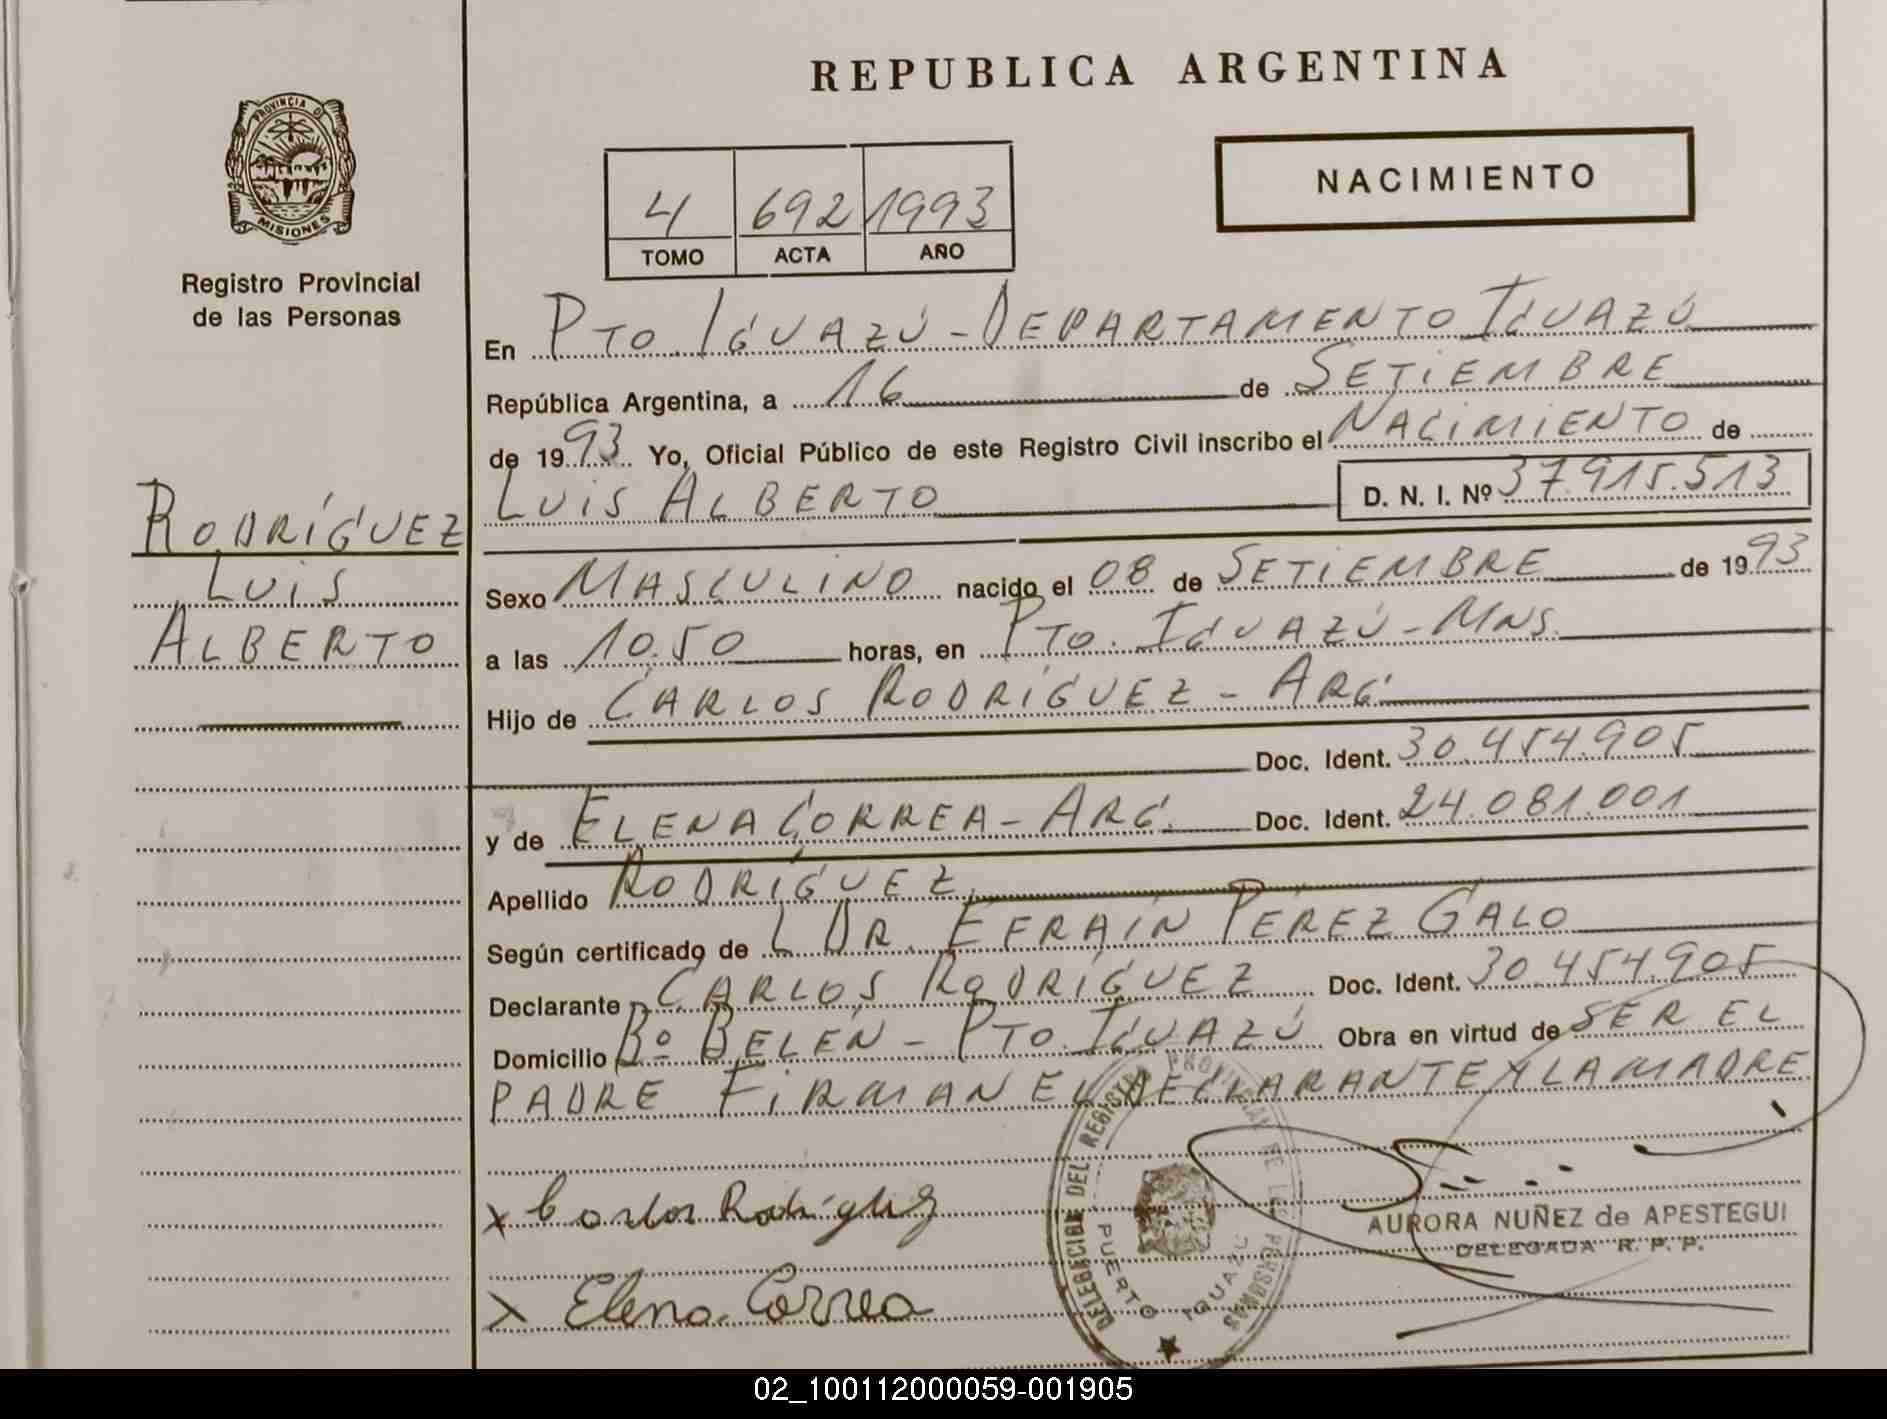 REPUBLICA ARGENTINA
PROVINCIA DE
MISIONES
Registro Provincial
de las Personas
NACIMIENTO
4 692 1993
TOMO ACTA AÑO
En PTO. IGUAZÚ - DEPARTAMENTO IGUAZÚ
República Argentina, a 16 de SETIEMBRE
de 1993 Yo, Oficial Público de este Registro Civil inscribo el NACIMIENTO de
LUIS ALBERTO D. N. I. Nº 37.915.513
RODRÍGUEZ
LUIS
ALBERTO
Sexo MASCULINO nacido el 08 de SETIEMBRE de 1993
a las 10.50 horas, en PTO. IGUAZÚ - MNS.
Hijo de CARLOS RODRÍGUEZ - ARG.
Doc. Ident. 30.454.905
y de ELENA CORREA - ARG. Doc. Ident. 24.081.001
Apellido RODRÍGUEZ
Según certificado de L DR. EFRAÍN PÉREZ GALO
Declarante CARLOS RODRÍGUEZ Doc. Ident. 30.454.905
Domicilio Bº BELÉN - PTO. IGUAZÚ Obra en virtud de SER EL
PADRE FIRMAN EL DECLARANTE Y LA MADRE
x Carlos Rodríguez
x Elena Correa
DELEGACION DEL REGISTRO PROVINCIAL DE LAS PERSONAS
PUERTO IGUAZU
AURORA NUÑEZ de APESTEGUI
DELEGADA R. P. P.
02_100112000059-001905